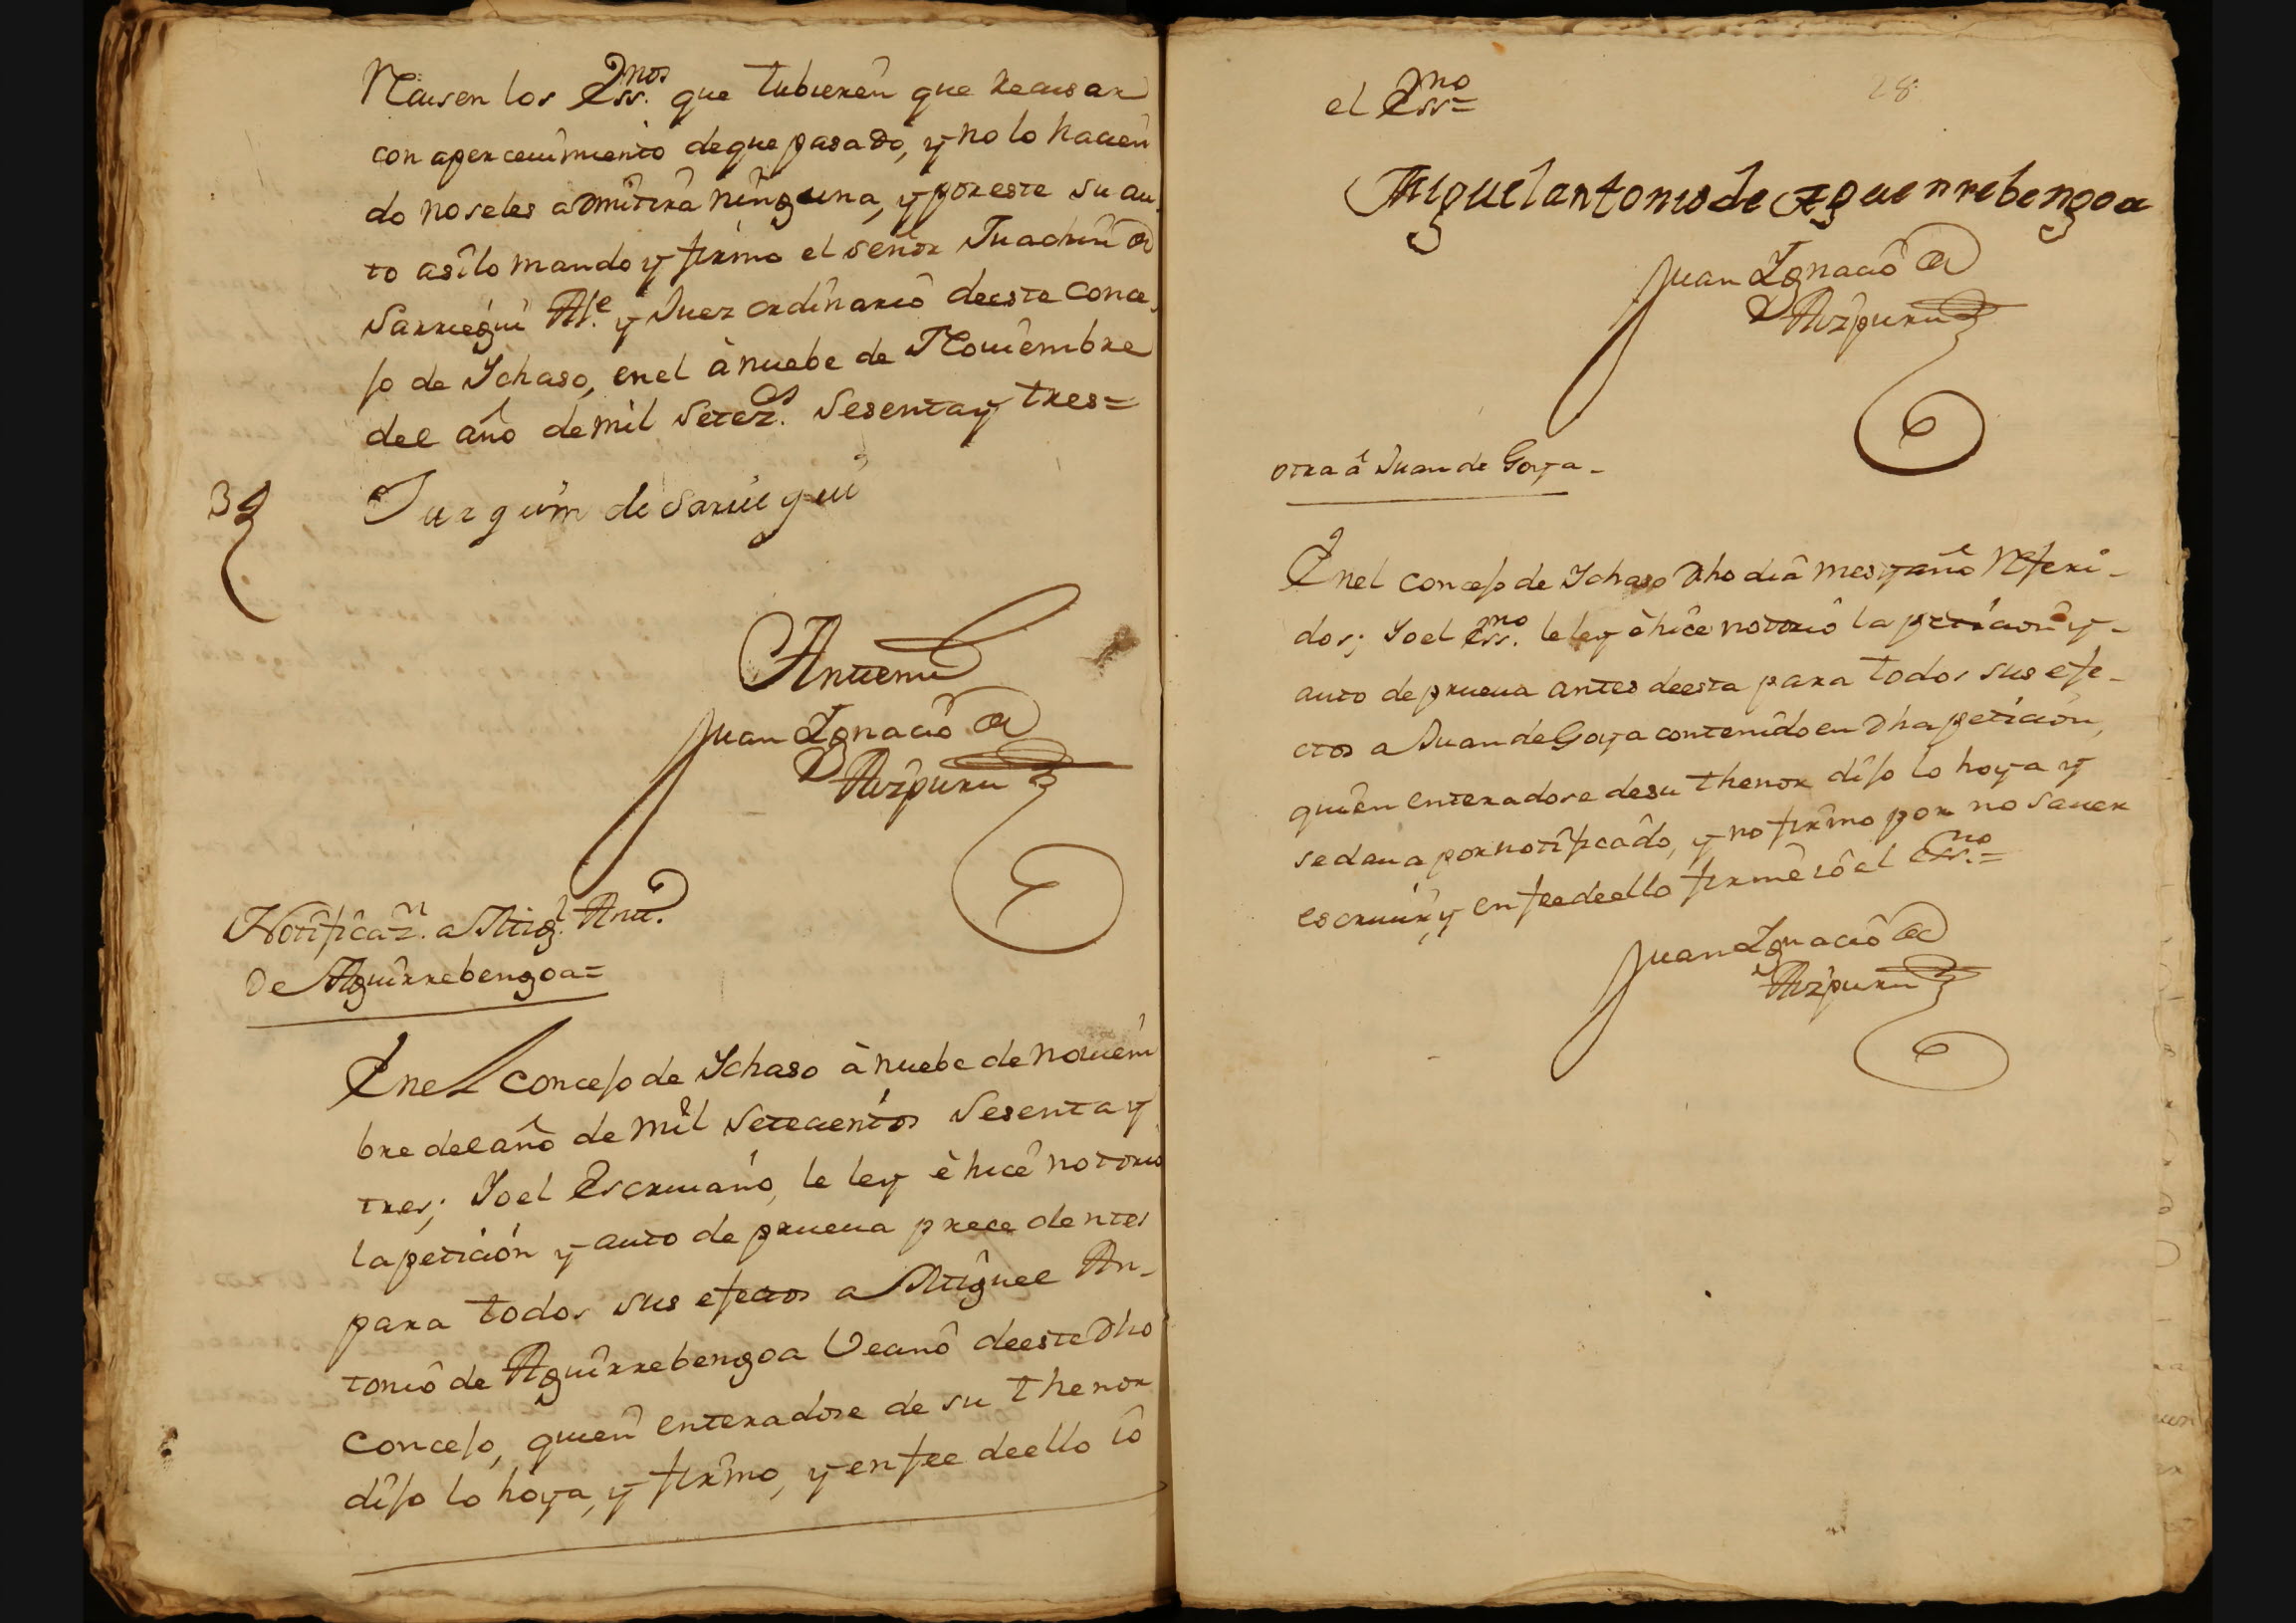 Recusen los Essnos. que tubieren que recusar
con apercevimiento de que pasado, y no lo hacien
do no seles admitira ninguna, y por este su au
to asi lo mando y firmo el señor Juachin de
Sarriegui Alle. y Juez ordinario de este Conce
jo de Ichaso, en el à nuebe de Noviembre
del año de mil Setezs. Sesenta y tres=
Juaquim de Sariegui
Antemi
Juan Ignacio de
Aizpuru
Notificazn. a Migl. Antt.
De Aguirrebengoa=
En el Concejo de Ichaso à nuebe de noviem
bre del año de mil Setecientos Sesenta y
tres; Yo el Escrivano, le ley è hice notorio
la petición y auto de prueva precedentes
para todos sus efectos a Miguel An-
tonio de Aguirrebengoa Vecino de este dho
Concejo, quien enteradose de su thenor
dijo lo hoya, y firmo, y en fee de ello io
el Essno=
28
Miguel antonio de Aguerrebengoa
Juan Ignacio de
Aizpuru
otra à Juan de Goya-
En el concejo de Ichaso dho dia mes y año referi-
dos; Yo el Essno. le ley è hice notorio la peticion y-
auto de prueva antes de esta para todos sus efe-
ctos a Juan de Goya contenido en dha petición,
quien enteradose de su thenor dijo lo hoya y
se dava por notificado, y no firmo por no saver
escrivir, y en fee de ello firmè io el Essno.=
Juan Ignacio de
Aizpuru